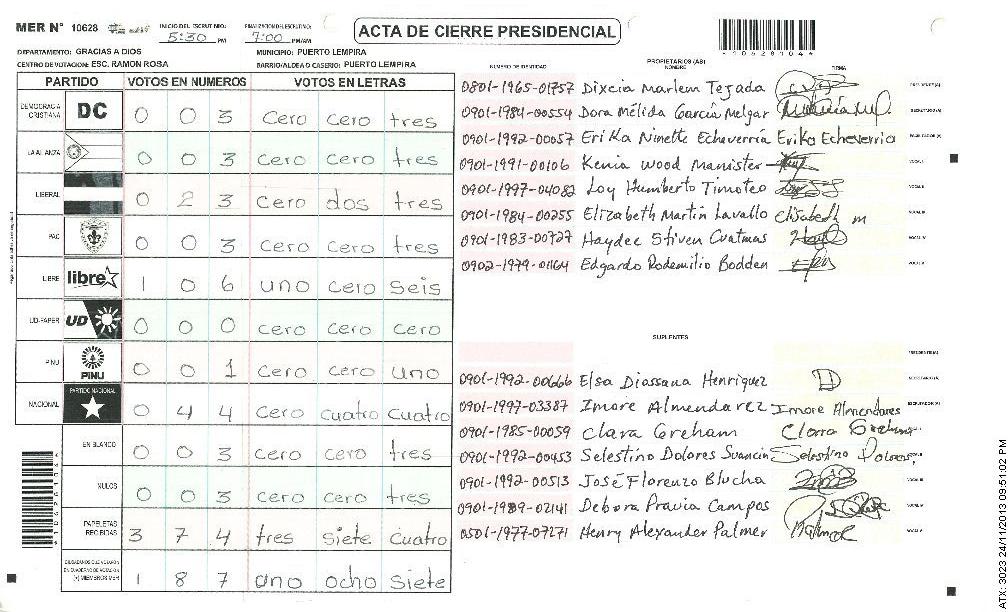 MER N° 10628 INICIO DEL ESCRUTINIO: 5:30 PM FINALIZACION DEL ESCRUTINIO: 7:00 PM/AM
ACTA DE CIERRE PRESIDENCIAL
*10628104*
DEPARTAMENTO: GRACIAS A DIOS MUNICIPIO: PUERTO LEMPIRA
CENTRO DE VOTACION: ESC. RAMON ROSA BARRIO/ALDEA O CASERIO: PUERTO LEMPIRA
PARTIDO VOTOS EN NUMEROS VOTOS EN LETRAS
DEMOCRACIA CRISTIANA DC 0 0 3 cero cero tres
LA ALIANZA 0 0 3 cero cero tres
LIBERAL 0 2 3 cero dos tres
PAC 0 0 3 cero cero tres
LIBRE libre 1 0 6 uno cero seis
UD-FAPER UD 0 0 0 cero cero cero
PINU PINU 0 0 1 cero cero uno
NACIONAL PARTIDO NACIONAL 0 4 4 cero cuatro cuatro
EN BLANCO 0 0 3 cero cero tres
NULOS 0 0 3 cero cero tres
PAPELETAS RECIBIDAS 3 7 4 tres siete cuatro
CIUDADANOS QUE VOTARON EN CUADERNO DE VOTACION (+) MIEMBROS MER 1 8 7 uno ocho siete
PROPIETARIOS (AS)
NUMERO DE IDENTIDAD NOMBRE FIRMA
0801-1965-01757 Dixcia Marlem Tejada PRESIDENTE(A)
0901-1984-00554 Dora Mélida García Melgar SECRETARIO(A)
0901-1992-00057 Erika Ninette Echeverría Erika Echeverria ESCRUTADOR(A)
0901-1991-00106 Kenia Wood Manister VOCAL I
0901-1997-04082 Loy Humberto Timoteo VOCAL II
0901-1984-00255 Elizabeth Martin Lavallo elisabeth m VOCAL III
0901-1983-00727 Haydee Stiven Cuatmas VOCAL IV
0902-1979-01164 Edgardo Rodemilio Bodden VOCAL V
SUPLENTES
PRESIDENTE(A)
0901-1992-00666 Elsa Diassana Henriquez SECRETARIO(A)
0901-1997-03387 Imore Almendarez Imore Almendares ESCRUTADOR(A)
0901-1985-00059 Clara Greham Clara Greham
0901-1992-00453 Selestino Dolores Suancin Selestino Dolores VOCAL II
0901-1992-00513 José Florenzo Blucha VOCAL III
0901-1989-02141 Debora Pravia Campos VOCAL IV
0501-1977-07271 Henry Alexander Palmer VOCAL V
ATX: 3023 24/11/2013 09:51:02 PM